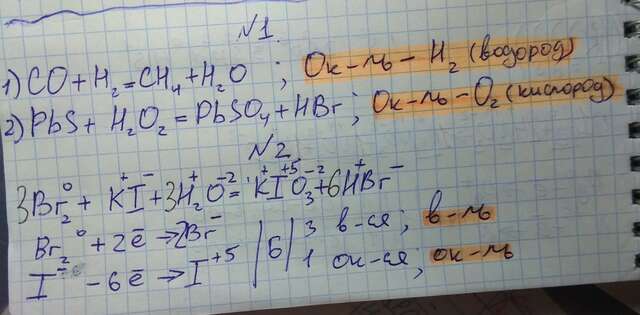 №1.
1) CO + H₂ = CH₄ + H₂O ; Ок-ль – H₂ (водород)
2) PbS + H₂O₂ = PbSO₄ + HBr ; Ок-ль – O₂ (кислород)
№2
3Br₂⁰ + K⁺I⁻ + 3H₂⁺O⁻² = K⁺I⁺⁵O₃⁻² + 6H⁺Br⁻
Br₂⁰ + 2ē → 2Br⁻ | 6 | 3 в-ся ; в-ль
I⁻ - 6ē → I⁺⁵ | 1 ок-ся ; ок-ль